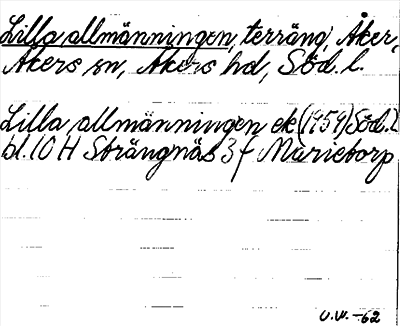 Lilla allmänningen, terräng, Åker,
Åkers sn, Åkers hd, Söd. l.
Lilla allmänningen ek (1959) Söd. l
bl. 10 H Strängnäs 3 f Marietorp
U.W. -62